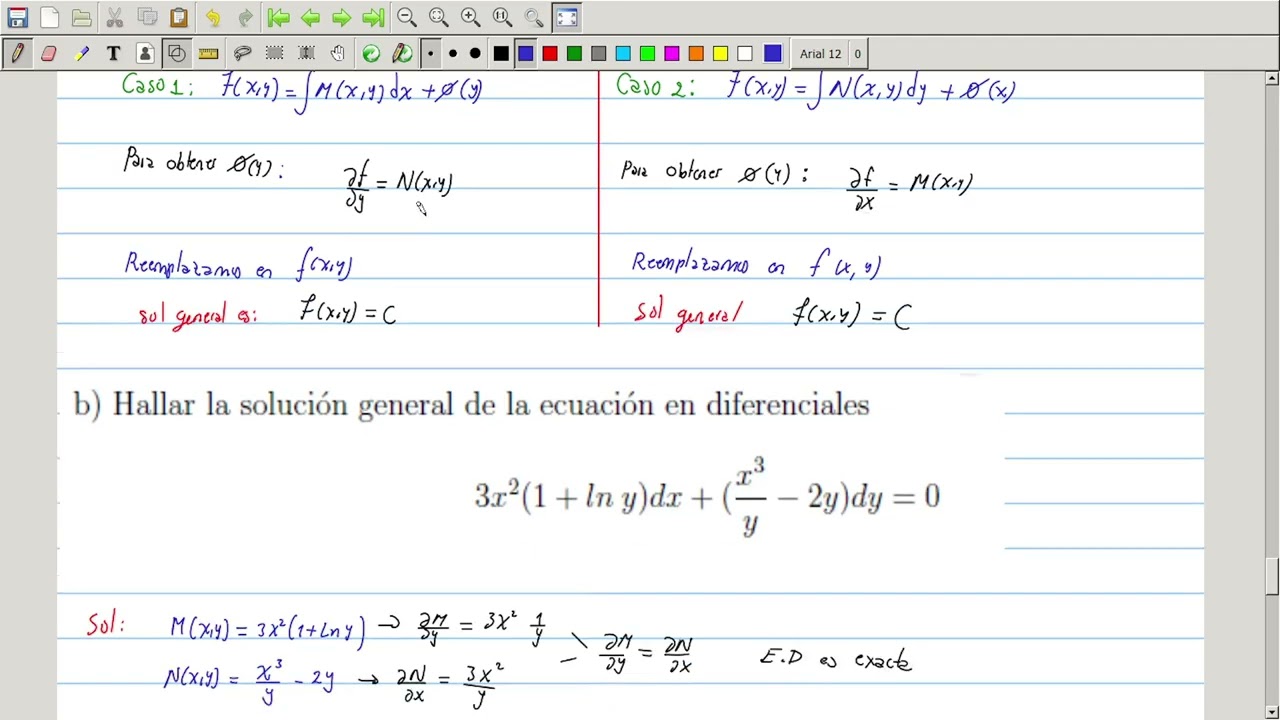 Arial 12 0
Caso 1: f(x,y) = ∫ M(x,y) dx + ∅(y)
Para obtener ∅(y):
∂f/∂y = N(x,y)
Reemplazamos en f(x,y)
sol general es: f(x,y) = C
Caso 2: f(x,y) = ∫ N(x,y) dy + ∅(x)
Para obtener ∅(y): ∂f/∂x = M(x,y)
Reemplazamos en f(x,y)
Sol general f(x,y) = C
b) Hallar la solución general de la ecuación en diferenciales
3x²(1 + ln y)dx + (x³/y − 2y)dy = 0
Sol: M(x,y) = 3x²(1+Ln y) → ∂M/∂y = 3x² 1/y
N(x,y) = x³/y − 2y → ∂N/∂x = 3x²/y
∂M/∂y = ∂N/∂x E.D es exacta